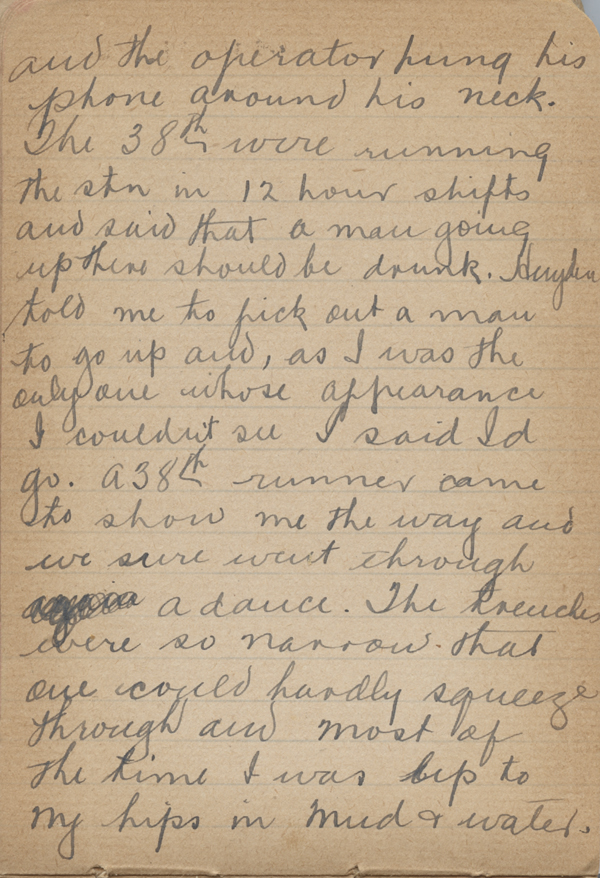 and the operator hung his
phone around his neck.
The 38th were running
the stn in 12 hour shifts
and said that a man going
up there should be drunk. Hayden
told me to pick out a man
to go up and, as I was the
only one whose appearance
I couldn't see I said I'd
go. A 38th runner came
to show me the way and
we sure went through
a dance. The trenches
were so narrow that
one could hardly squeeze
through and most of
the time I was up to
my hips in mud & water.